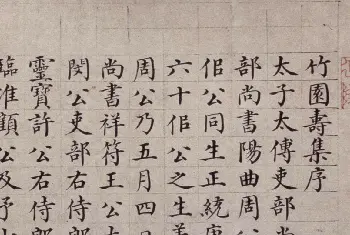 竹園壽集序
太子太傅吏部尚
部尚書陽曲周公
佀公同生正統庚
六十佀公之生
周公乃五月四日
尚書祥符王公
閔公吏部右侍郎
靈寶許公右侍郎
臨淮顧公及予